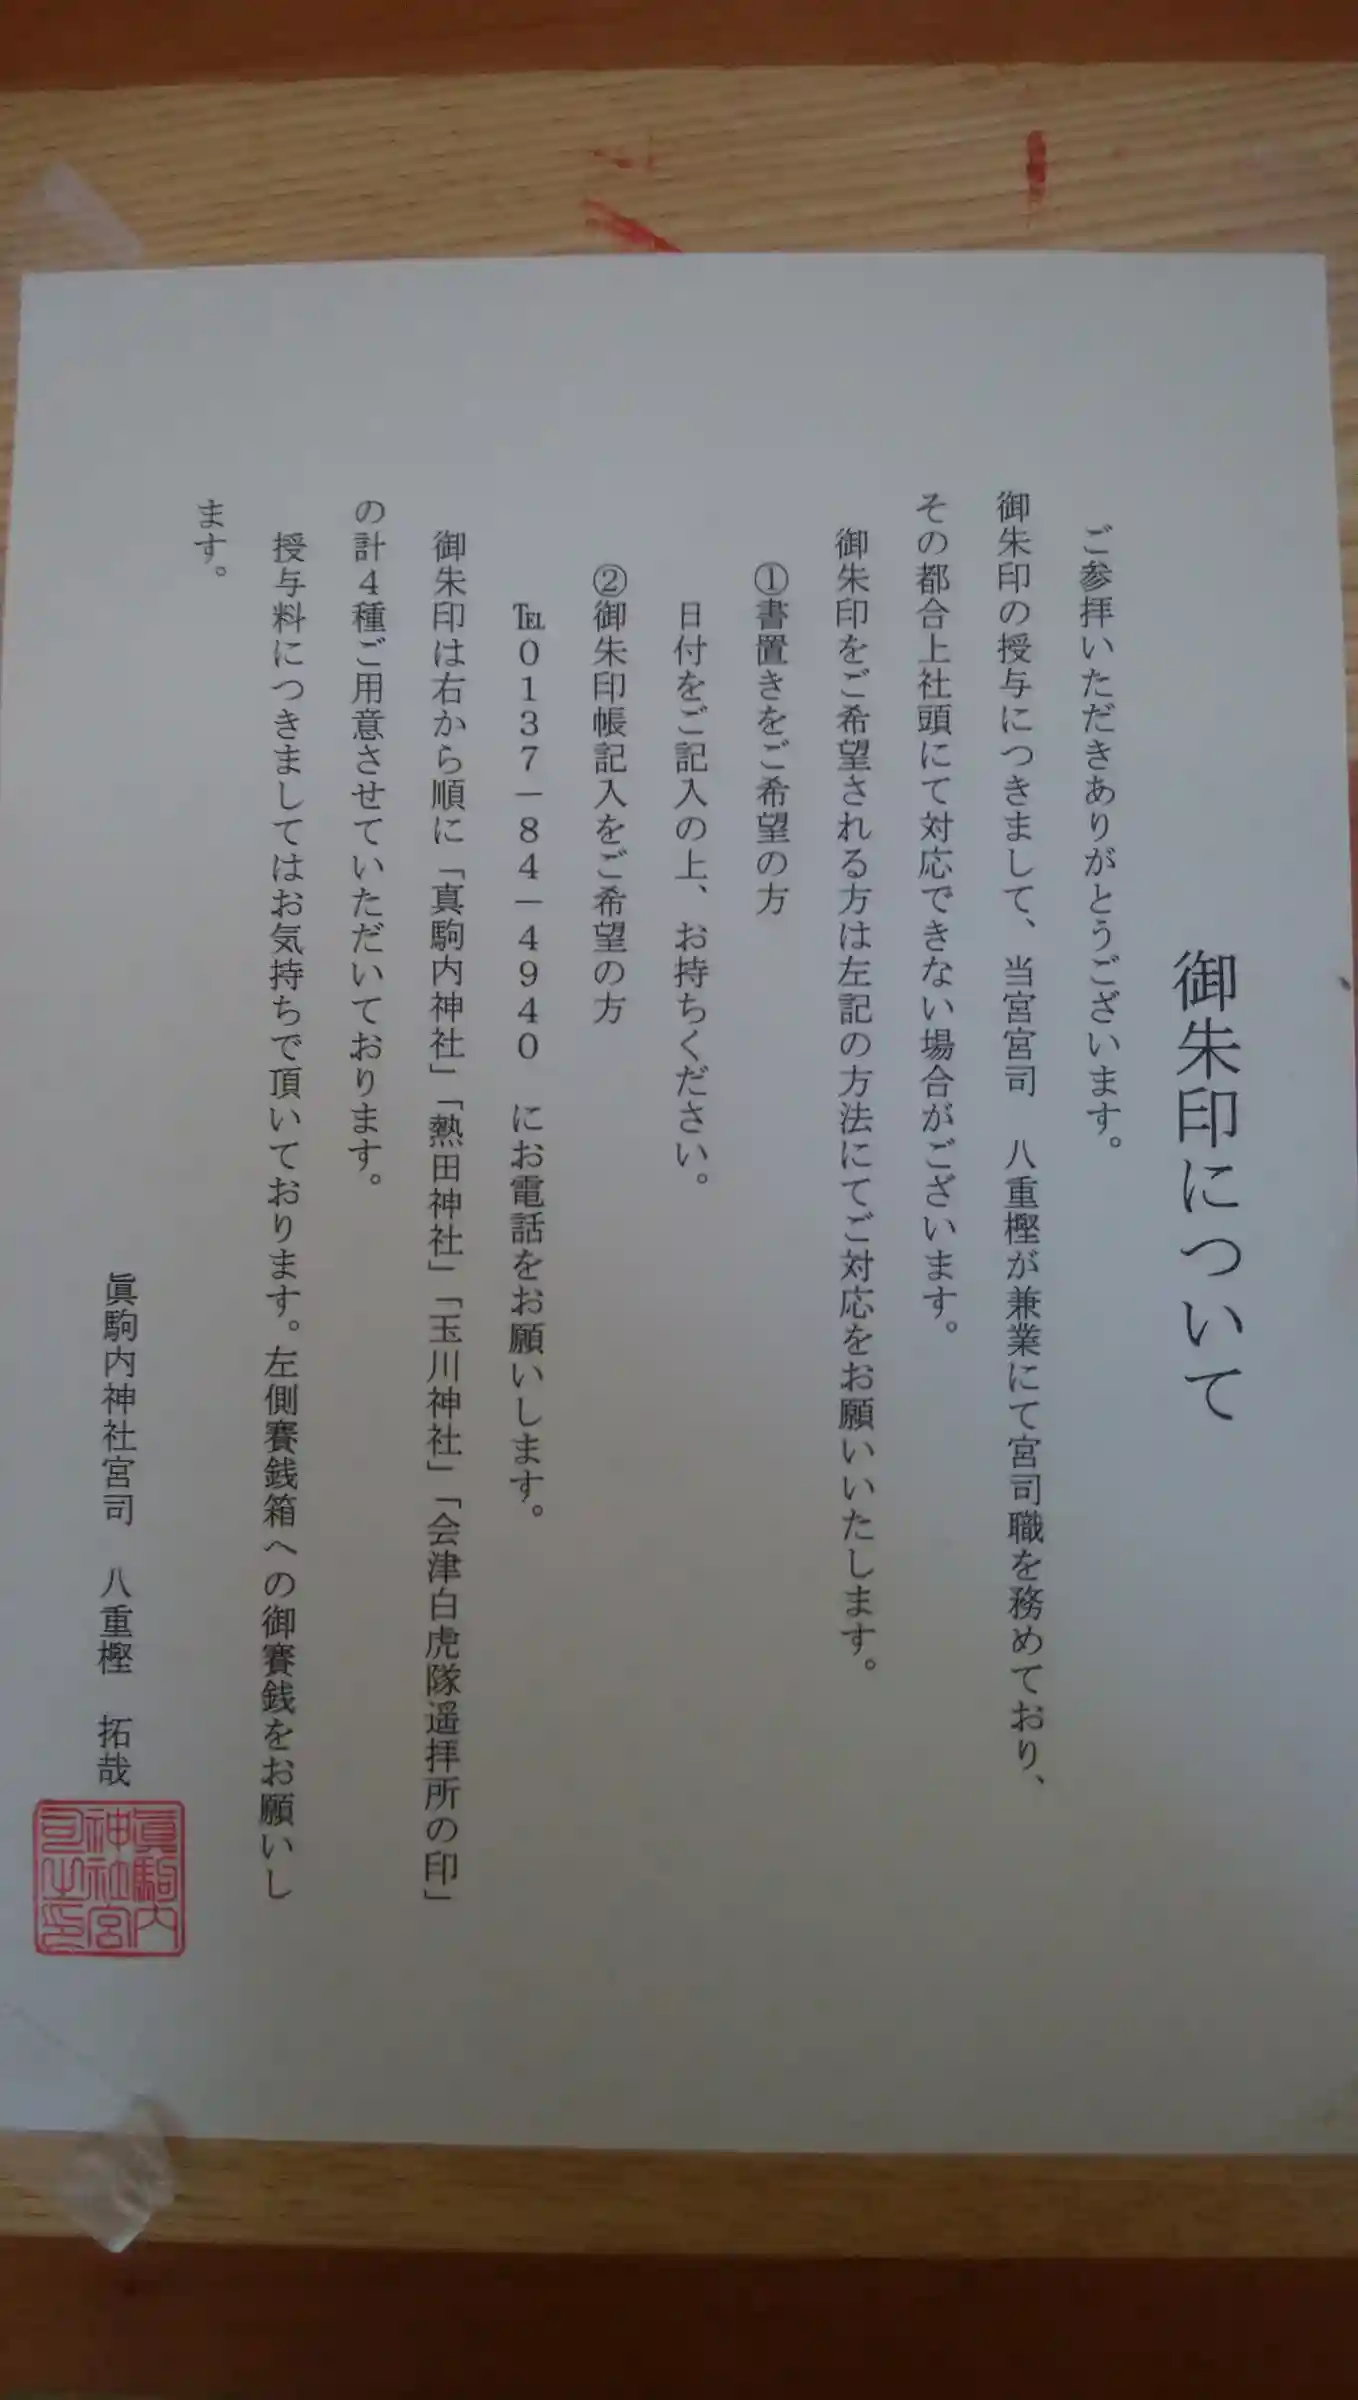 御朱印について
ご参拝いただきありがとうございます。
御朱印の授与につきまして、当宮宮司　八重樫が兼業にて宮司職を務めており、
その都合上社頭にて対応できない場合がございます。
御朱印をご希望される方は左記の方法にてご対応をお願いいたします。
①書置きをご希望の方
日付をご記入の上、お持ちください。
②御朱印帳記入をご希望の方
℡0137－84－4940　にお電話をお願いします。
御朱印は右から順に「真駒内神社」「熱田神社」「玉川神社」「会津白虎隊遥拝所の印」
の計4種ご用意させていただいております。
授与料につきましてはお気持ちで頂いております。左側賽銭箱への御賽銭をお願いし
ます。
眞駒内神社宮司　八重樫　拓哉
眞駒内
神社宮
司之印